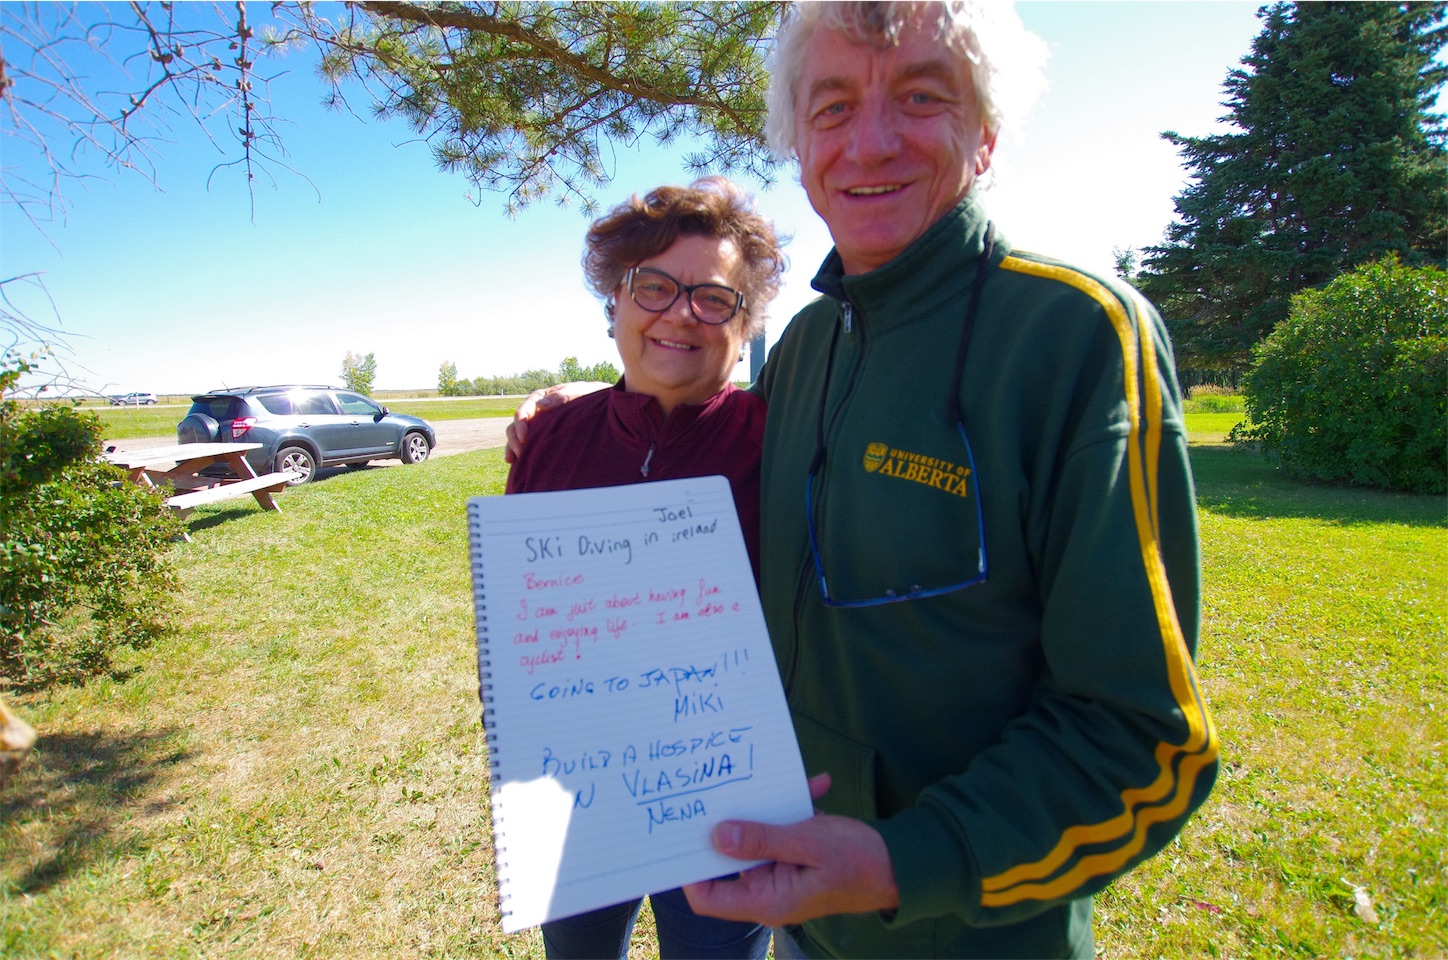 UNIVERSITY OF
ALBERTA
Joel
SKi Diving in ireland
Bernice
I am just about having fun
and enjoying life. I am also a
cyclist!
GOING TO JAPAN!!!
MiKi
BUILD A HOSPICE
VLASiNA!
NENA